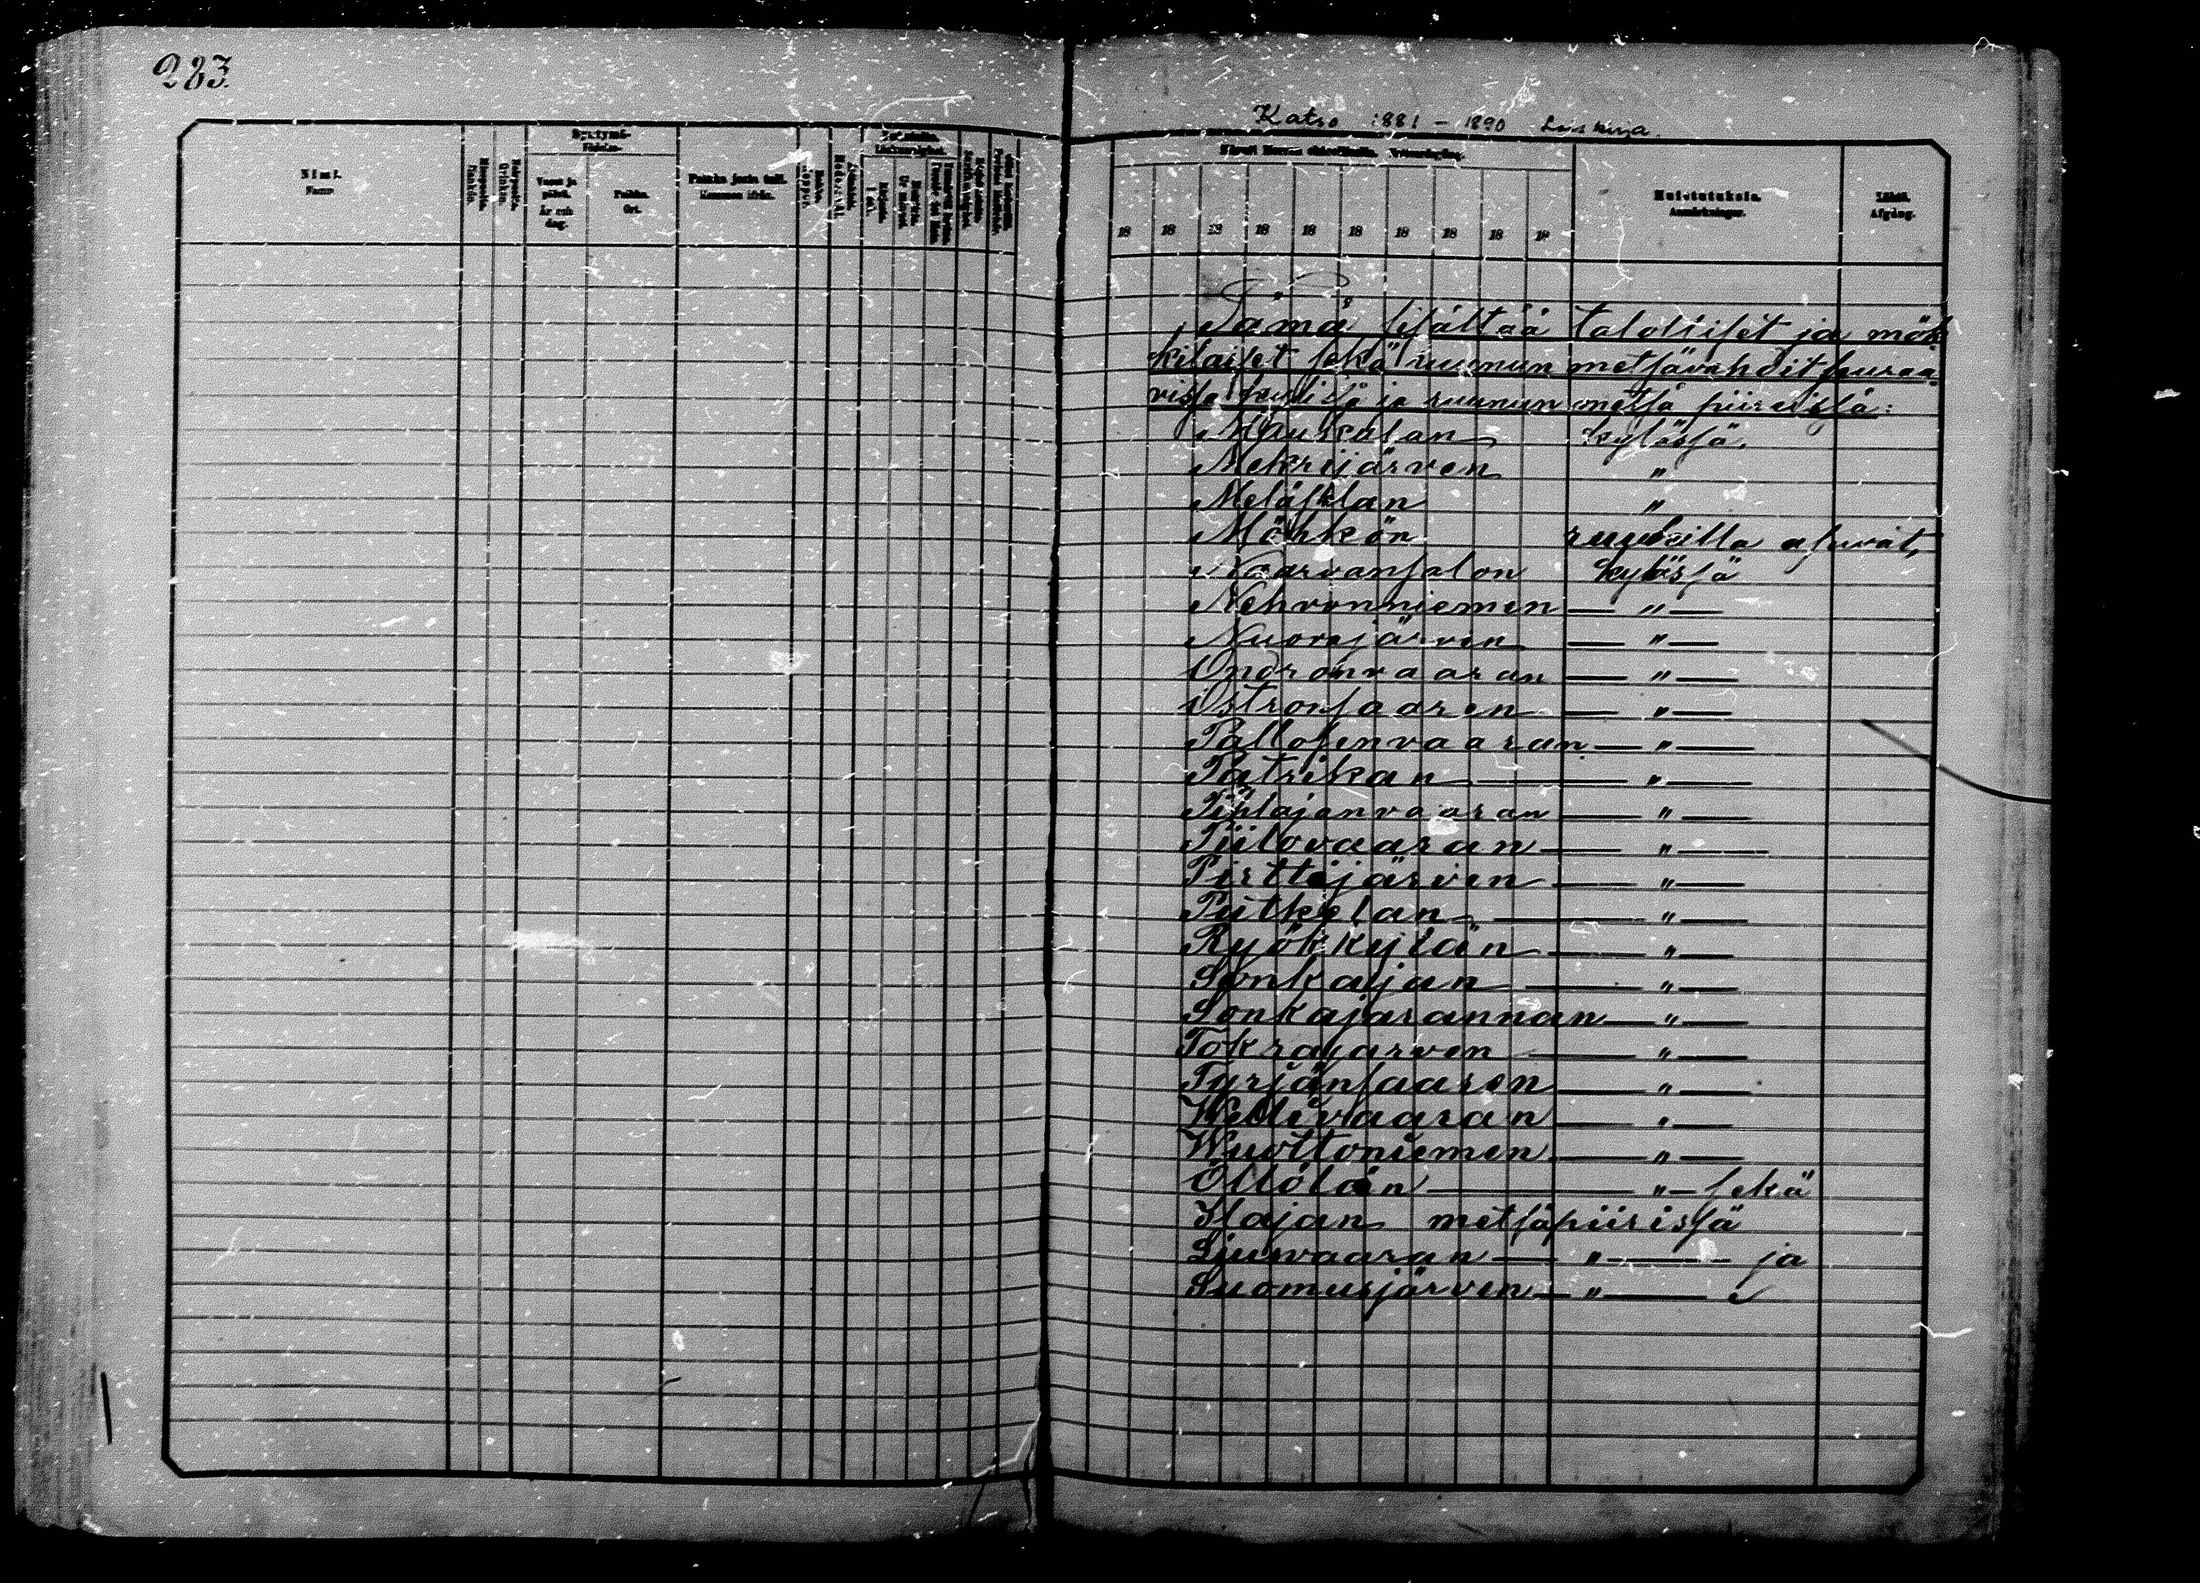 283.
Katso 1881 – 1890 Lastenkirja.
Nimi.
Namn
Syntymä-
Födelse-
Vuosi ja päivä.
År och dag.
Paikka.
Ort.
Paikka josta tuli.
Kommen ifrån.
18 18 18 18 18 18 18 18 18 18
Muistutuksia.
Anmärkningar.
Lähtö.
Afgång.
Tämä sisältää talolliset ja mök
kilaiset sekä ruunun metsävahdit seuraa-
vissa kylissä ja ruunun metsä piireissä:
Maukalan kylässä.
Mekrijärven "
Meläselan "
Möhkön ruukilla asuvat,
Naarvansalon kylässä
Nehvonniemen — " —
Nuorajärven — " —
Ondronvaaran — " —
Ostronsaaren — " —
Pallosenvaaran — " —
Patrikan — " —
Pihlajanvaaran — " —
Piilovaaran — " —
Pirttijärven — " —
Putkelan — " —
Ryökkylän — " —
Sonkajan — " —
Sonkajarannan — " —
Tokrajärven — " —
Tyrjänsaaren — " —
Wellivaaran — " —
Wuottoniemen — " —
Öllölän — " — sekä
Ilajan metsäpiirissä
Liuvaaran — " — ja
Suomusjärven — " —